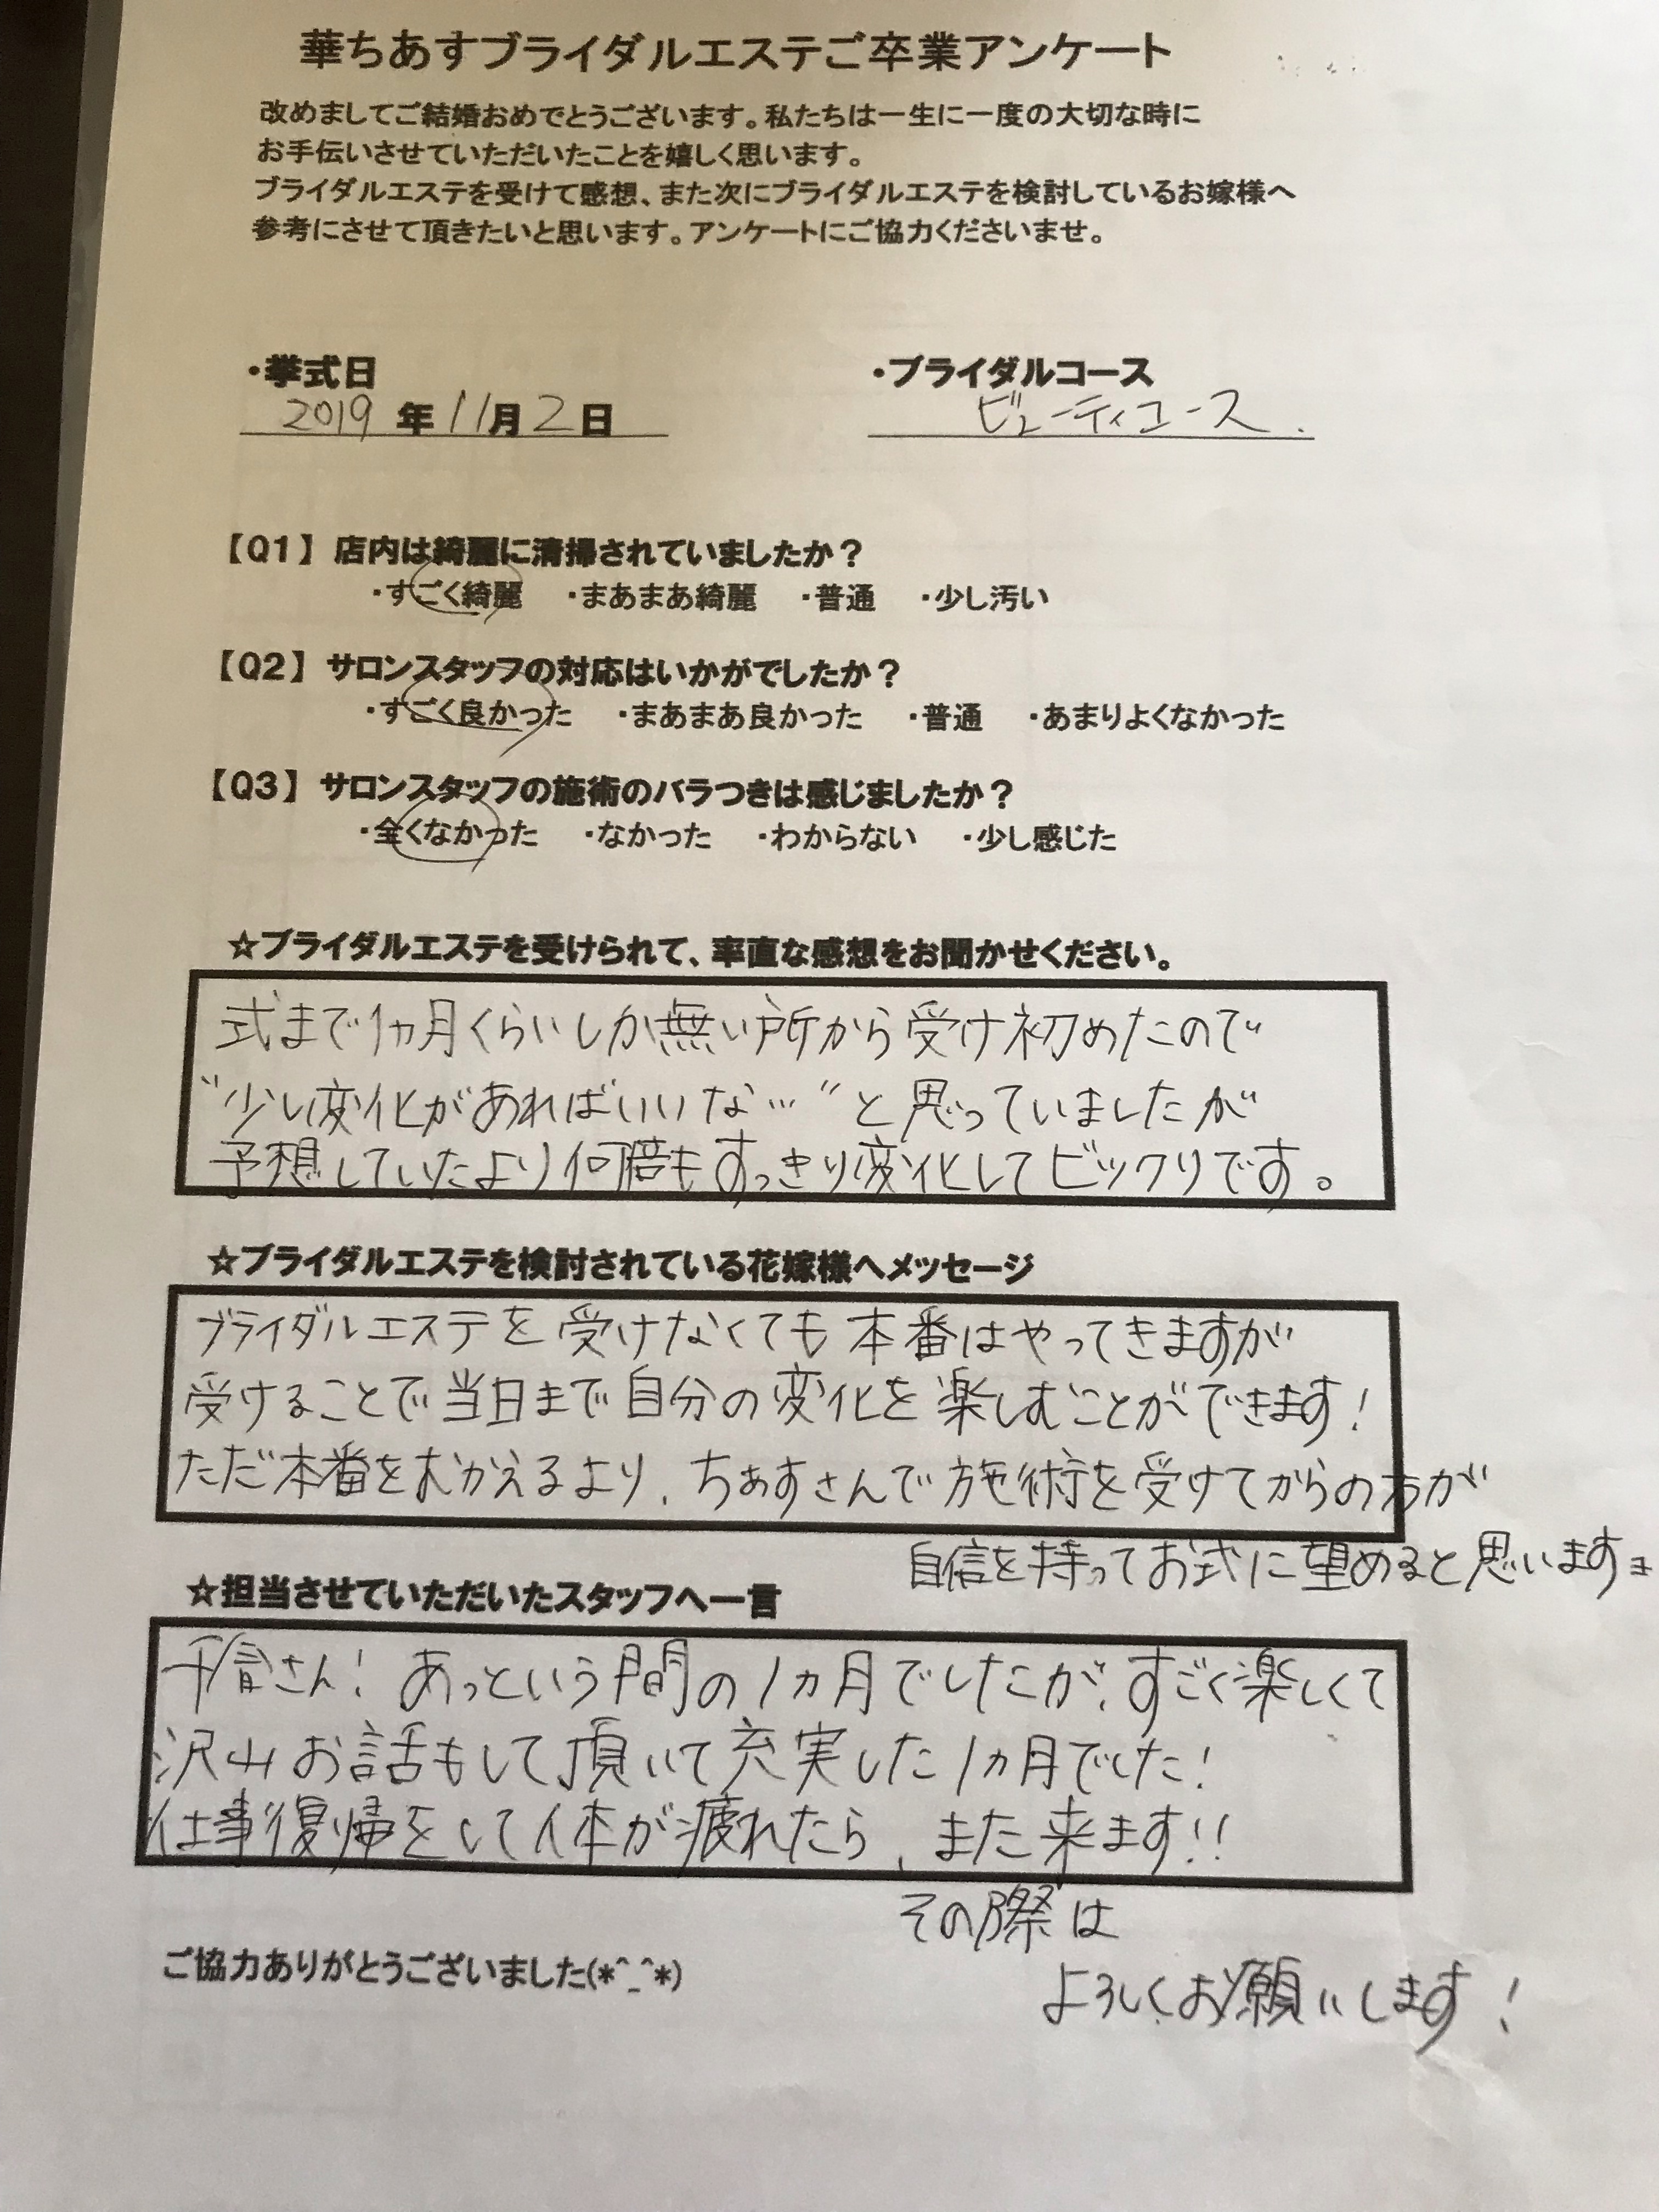 華ちあすブライダルエステご卒業アンケート
改めましてご結婚おめでとうございます。私たちは一生に一度の大切な時に
お手伝いさせていただいたことを嬉しく思います。
ブライダルエステを受けて感想、また次にブライダルエステを検討しているお嫁様へ
参考にさせて頂きたいと思います。アンケートにご協力くださいませ。
・挙式日 ・ブライダルコース
2019年11月2日 ビューティコース.
【Q1】店内は綺麗に清掃されていましたか？
・すごく綺麗 ・まあまあ綺麗 ・普通 ・少し汚い
【Q2】サロンスタッフの対応はいかがでしたか？
・すごく良かった ・まあまあ良かった ・普通 ・あまりよくなかった
【Q3】サロンスタッフの施術のバラつきは感じましたか？
・全くなかった ・なかった ・わからない ・少し感じた
☆ブライダルエステを受けられて、率直な感想をお聞かせください。
式まで1ヵ月くらいしか無い所から受け初めたので
“少し変化があればいいな…”と思っていましたが
予想していたより何倍もすっきり変化してビックリです。
☆ブライダルエステを検討されている花嫁様へメッセージ
ブライダルエステを受けなくても本番はやってきますが
受けることで当日まで自分の変化を楽しむことができます！
ただ本番をむかえるより、ちあすさんで施術を受けてからの方が
自信を持ってお式に望めると思います
☆担当させていただいたスタッフへ一言
さん！あっという間の1ヵ月でしたが、すごく楽しくて
沢山お話もして頂いて充実した1ヵ月でした！
仕事復帰をして体が疲れたら、また来ます！！
その際は
よろしくお願いします！
ご協力ありがとうございました(*^_^*)